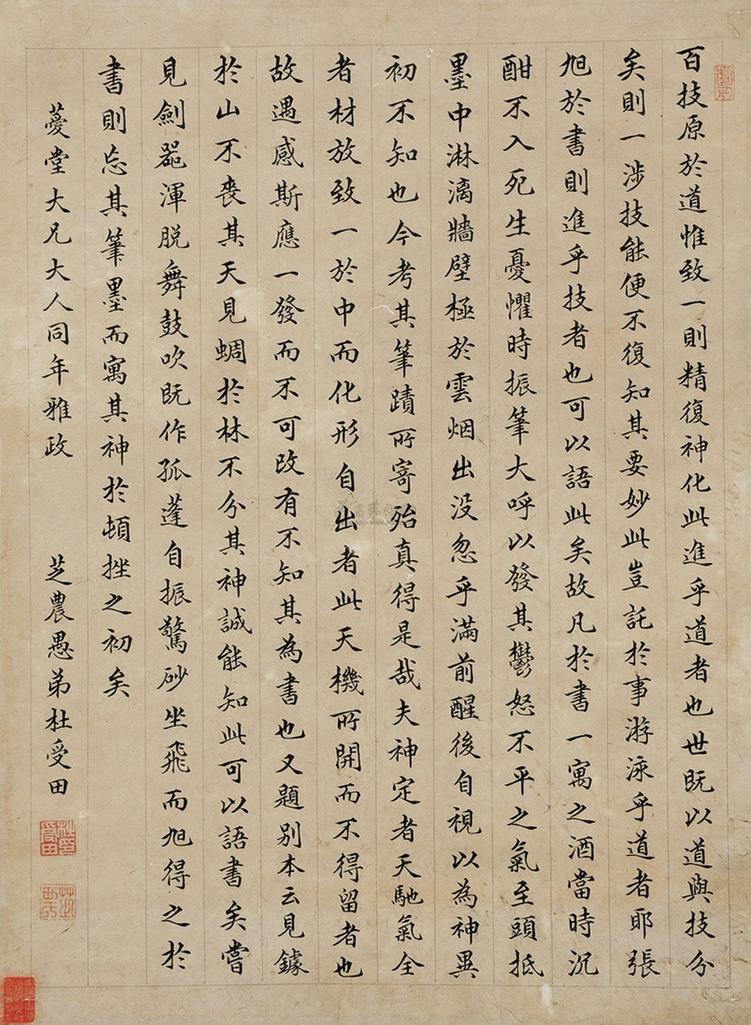 百技原於道惟致一則精復神化此進乎道者也世既以道與技分
矣則一涉技能便不復知其要妙此豈託於事游泳乎道者耶張
旭於書則進乎技者也可以語此矣故凡於書一寓之酒當時沉
酣不入死生憂懼時振筆大呼以發其鬱怒不平之氣至頭抵
墨中淋漓牆壁極於雲烟出沒忽乎滿前醒後自視以為神異
初不知也今考其筆蹟所寄殆真得是哉夫神定者天馳氣全
者材放致一於中而化形自出者此天機所開而不得留者也
故遇感斯應一發而不可改有不知其為書也又題別本云見鐻
於山不喪其天見蜩於林不分其神誠能知此可以語書矣嘗
見劍器渾脱舞鼓吹既作孤蓬自振驚砂坐飛而旭得之於
書則忘其筆墨而寓其神於頓挫之初矣
薆堂大兄大人同年雅政
芝農愚弟杜受田